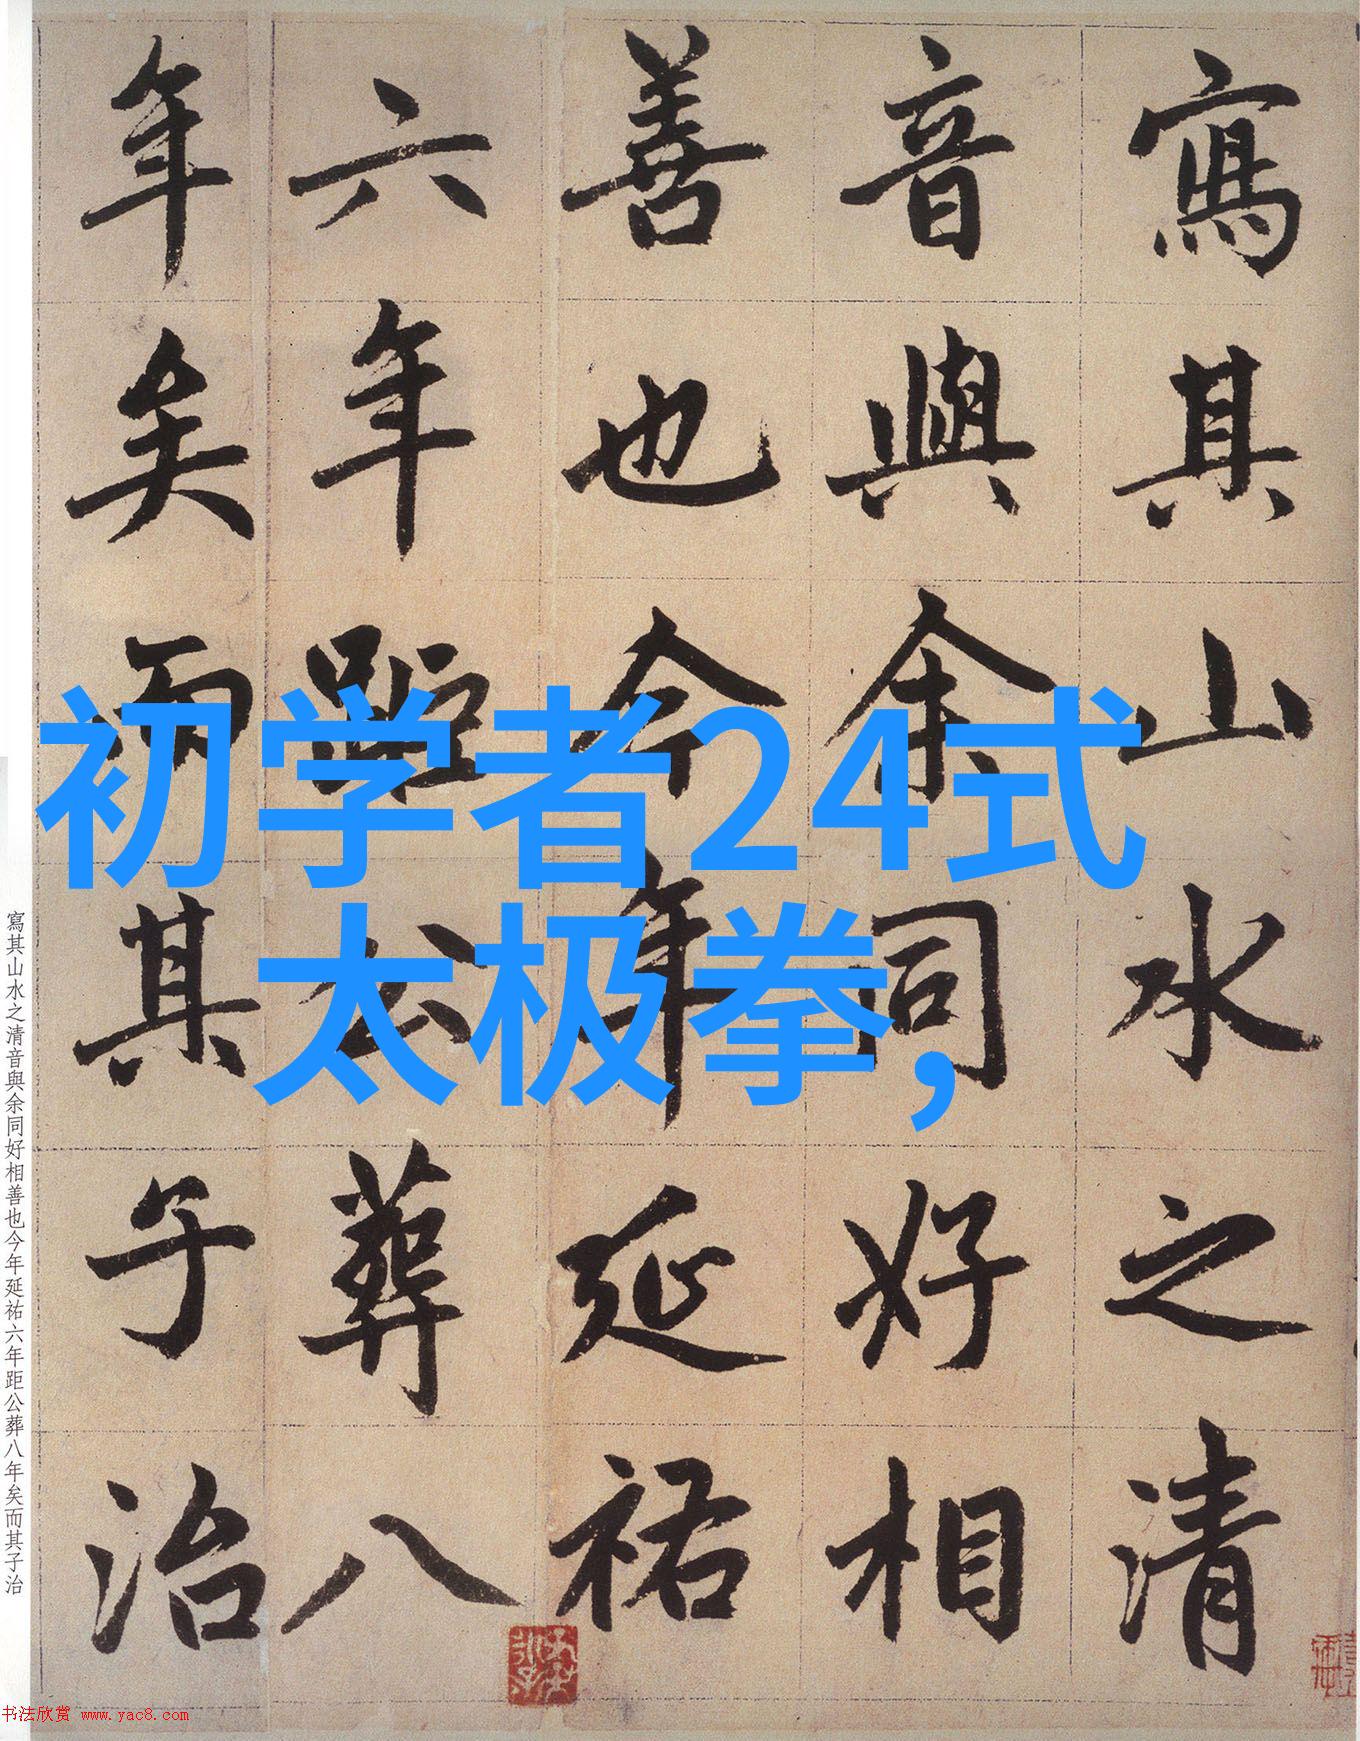 寫其山水之清
音與余同好相
善也今年延祐
六年距公葬八
年矣而其子治
初学者24式
太极拳,
寫其山水之清音與余同好相善也今年延祐六年距公葬八年矣而其子治
书法欣赏 www.yac8.com